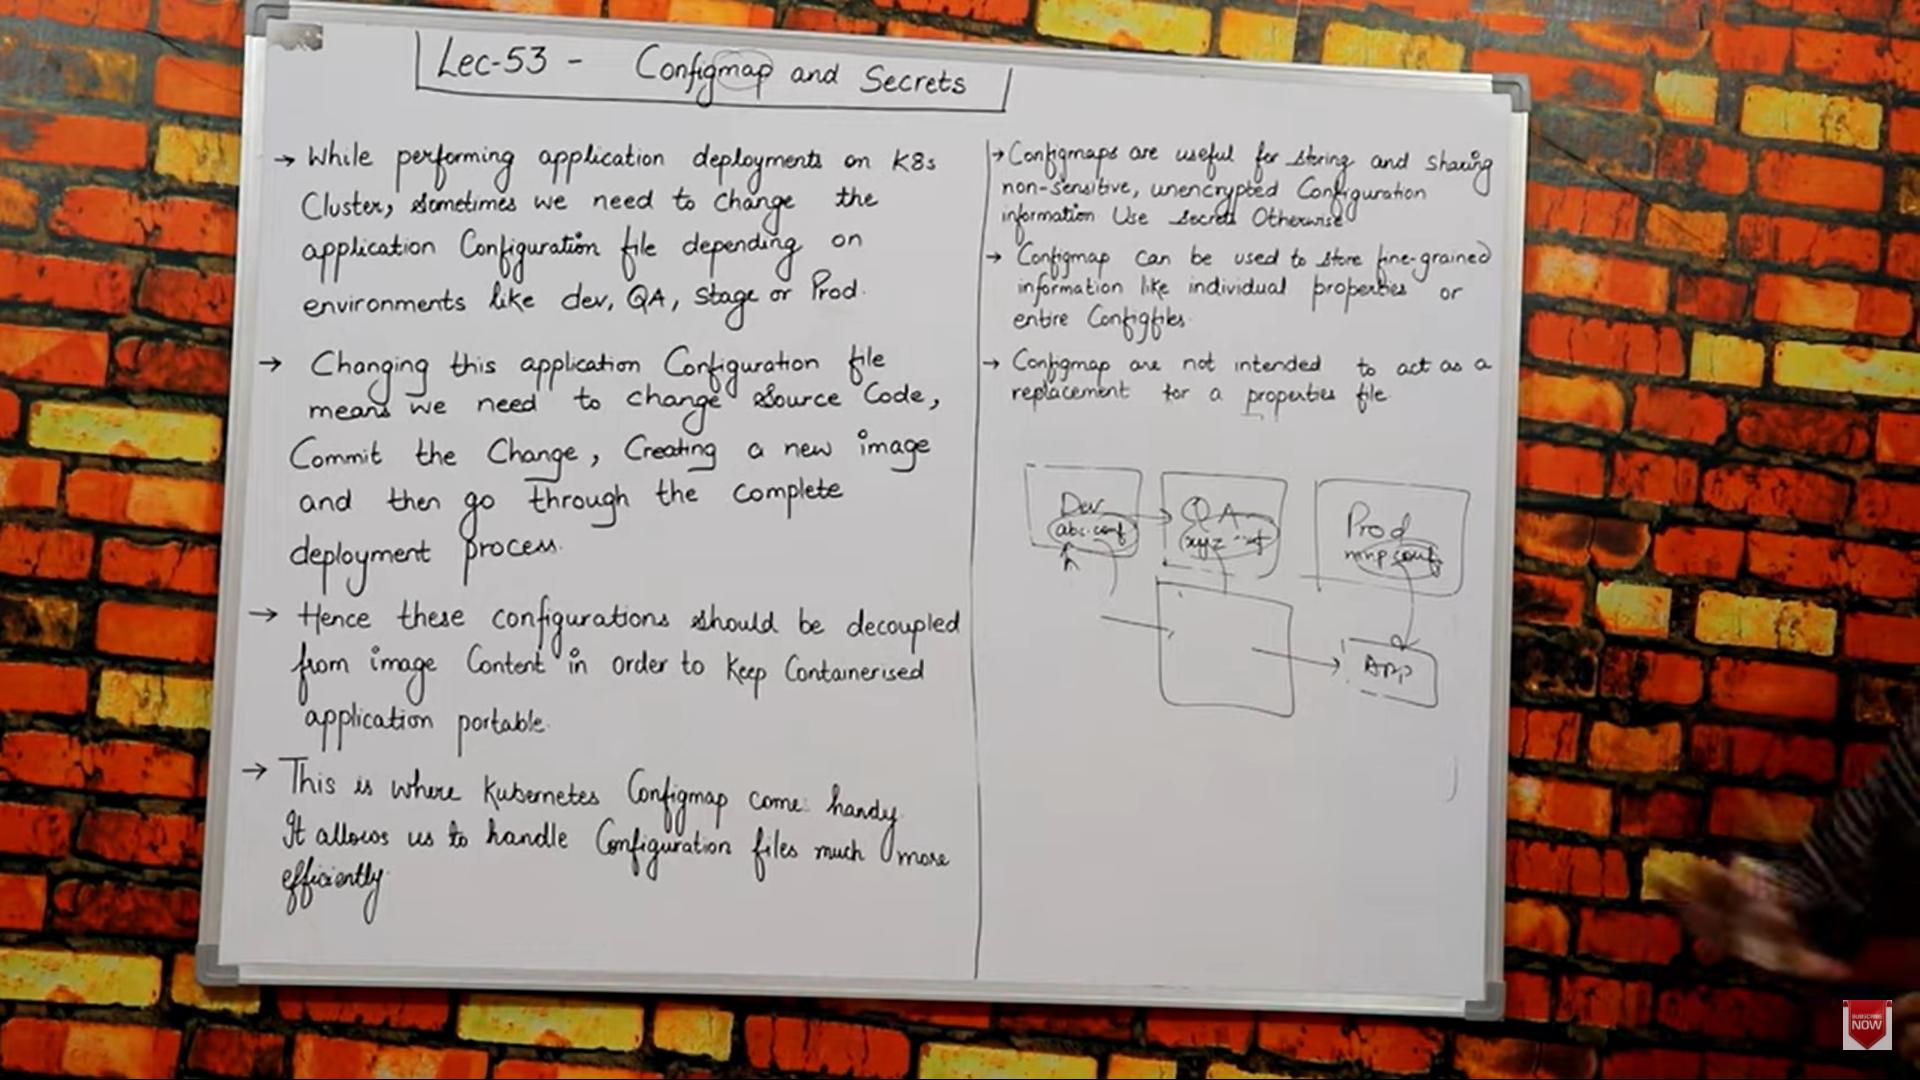 Lec-53 - Configmap and Secrets
→ While performing application deployments on K8s
Cluster, sometimes we need to change the
application Configuration file depending on
environments like dev, QA, Stage or Prod.
→ Changing this application Configuration file
means we need to change Source Code,
Commit the Change, Creating a new image
and then go through the complete
deployment process.
→ Hence these configurations should be decoupled
from image Content in order to keep Containerised
application portable.
→ This is where Kubernetes Configmap come handy.
It allows us to handle Configuration files much more
efficiently.
→ Configmaps are useful for storing and sharing
non-sensitive, unencrypted Configuration
information Use Secrets Otherwise
→ Configmap can be used to store fine-grained
information like individual properties or
entire Configfiles.
→ Configmap are not intended to act as a
replacement for a properties file.
Dev
abc.conf
QA
xyz
Prod
mnp conf
App
SUBSCRIBE
NOW